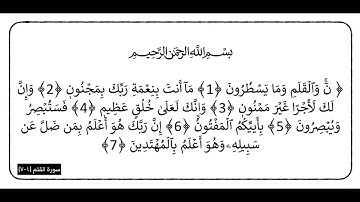 بسم الله الرحمن الرحيم
﴿ نٓ وَٱلْقَلَمِ وَمَا يَسْطُرُونَ ﴿1﴾ مَآ أَنتَ بِنِعْمَةِ رَبِّكَ بِمَجْنُونٍ ﴿2﴾ وَإِنَّ
لَكَ لَأَجْرًا غَيْرَ مَمْنُونٍ ﴿3﴾ وَإِنَّكَ لَعَلَىٰ خُلُقٍ عَظِيمٍ ﴿4﴾ فَسَتُبْصِرُ
وَيُبْصِرُونَ ﴿5﴾ بِأَييِّكُمُ ٱلْمَفْتُونُ ﴿6﴾ إِنَّ رَبَّكَ هُوَ أَعْلَمُ بِمَن ضَلَّ عَن
سَبِيلِهِۦ وَهُوَ أَعْلَمُ بِٱلْمُهْتَدِينَ ﴿7﴾
سورة القلم (١-٧)